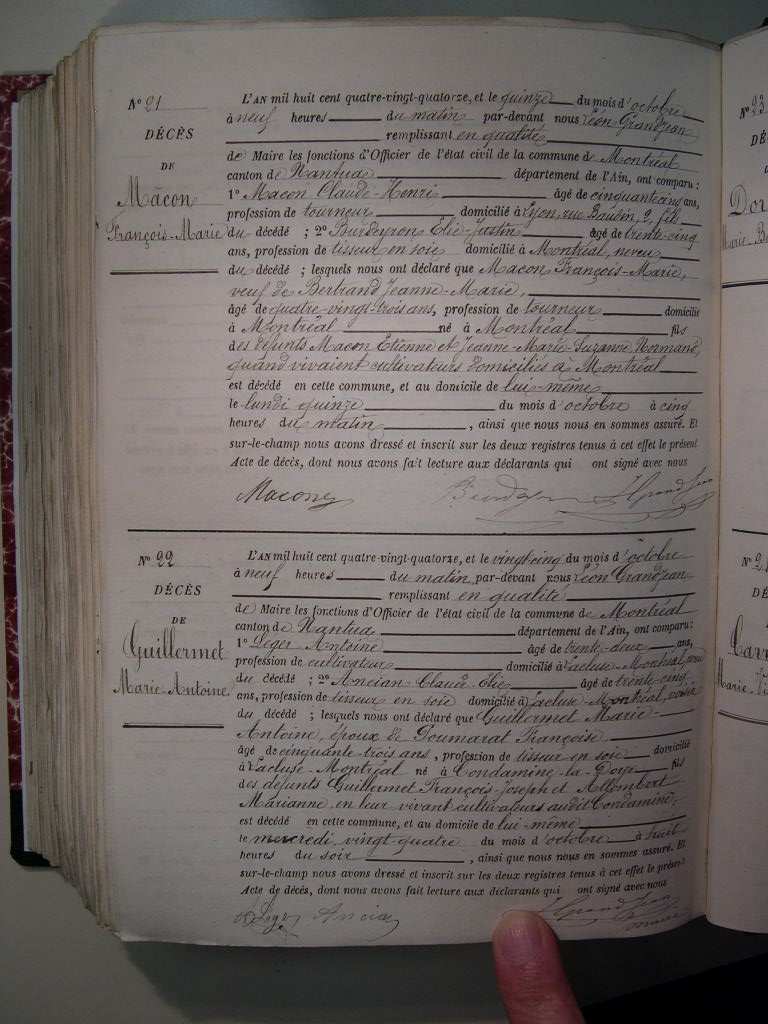 N° 21
DÉCÈS
DE
Mâcon
François-Marie
L'AN mil huit cent quatre-vingt-quatorze, et le quinze du mois d'octobre
à neuf heures du matin par-devant nous Léon Grandjean
remplissant en qualité
de Maire les fonctions d'Officier de l'état civil de la commune de Montréal
canton de Nantua département de l'Ain, ont comparu:
1° Macon Claude-Henri âgé de cinquante cinq ans,
profession de tourneur domicilié à Lyon, rue Baudin, 2, fils
du décédé ; 2° Burdeyron Elie-Justin âgé de trente-cinq
ans, profession de tisseur en soie domicilié à Montréal, neveu
du décédé ; lesquels nous ont déclaré que Macon François-Marie,
veuf de Bertrand Jeanne-Marie,
âgé de quatre-vingt-trois ans, profession de tourneur domicilié
à Montréal né à Montréal fils
des défunts Macon Etienne et Jeanne-Marie-Suzanne Normand,
quand vivaient cultivateurs domiciliés à Montréal
est décédé en cette commune, et au domicile de lui-même
le lundi quinze du mois d'octobre à cinq
heures du matin, ainsi que nous nous en sommes assuré. Et
sur-le-champ nous avons dressé et inscrit sur les deux registres tenus à cet effet le présent
Acte de décès, dont nous avons fait lecture aux déclarants qui ont signé avec nous
Macon Grandjean
N° 22
DÉCÈS
DE
Guillermet
Marie-Antoine
L'AN mil huit cent quatre-vingt-quatorze, et le vingt-cinq du mois d'octobre
à neuf heures du matin, par-devant nous Léon Grandjean
remplissant en qualité
de Maire les fonctions d'Officier de l'état civil de la commune de Montréal
canton de Nantua département de l'Ain, ont comparu:
1° Léger Antoine âgé de trente-deux ans,
profession de cultivateur domicilié à Lacluse-Montréal,
du décédé ; 2° Ancian Claude-Elie âgé de trente-cinq
ans, profession de tisseur en soie domicilié à Lacluse Montréal, voisin
du décédé ; lesquels nous ont déclaré que Guillermet Marie-
Antoine, époux de Poumarat Françoise
âgé de cinquante-trois ans, profession de tisseur en soie domicilié
à Lacluse-Montréal né à Condamine-la-Doye fils
des défunts Guillermet François-Joseph et Allombert
Marianne, en leur vivant cultivateurs audit Condamine,
est décédé en cette commune, et au domicile de lui-même
le mercredi vingt-quatre du mois d'octobre à huit
heures du soir, ainsi que nous nous en sommes assuré. Et
sur-le-champ nous avons dressé et inscrit sur les deux registres tenus à cet effet le présent
Acte de décès, dont nous avons fait lecture aux déclarants qui ont signé avec nous
Léger Ancian Grandjean
N° 23
DÉ
Dor
Marie-
N° 2
DÉ
Carr
Marie-